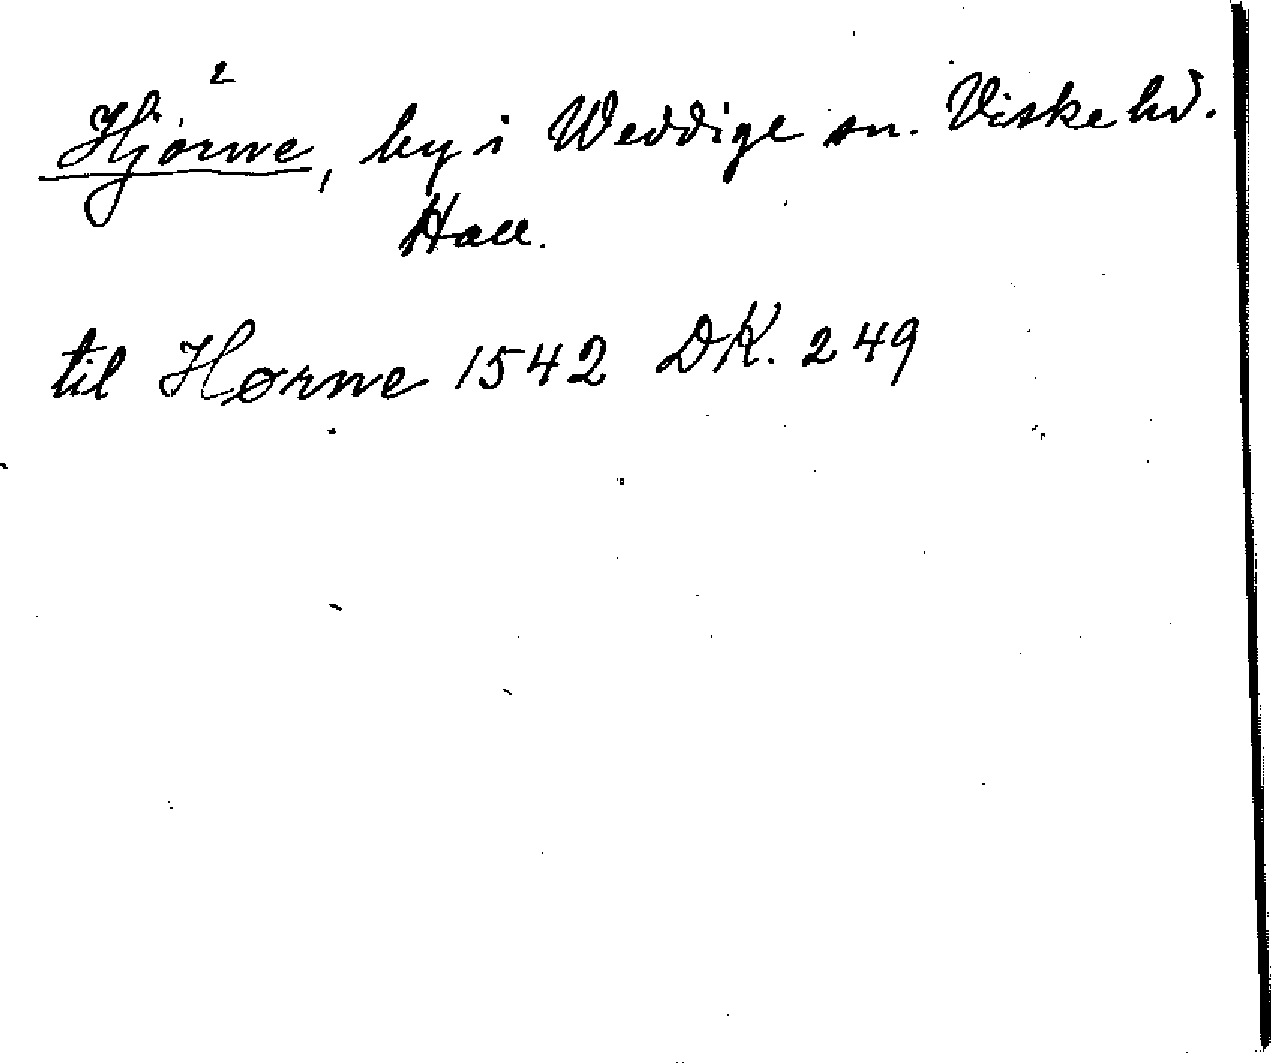 Hjörne², by i Weddige sn. Viske hd.
Hall.
til Hørne 1542 DK. 249